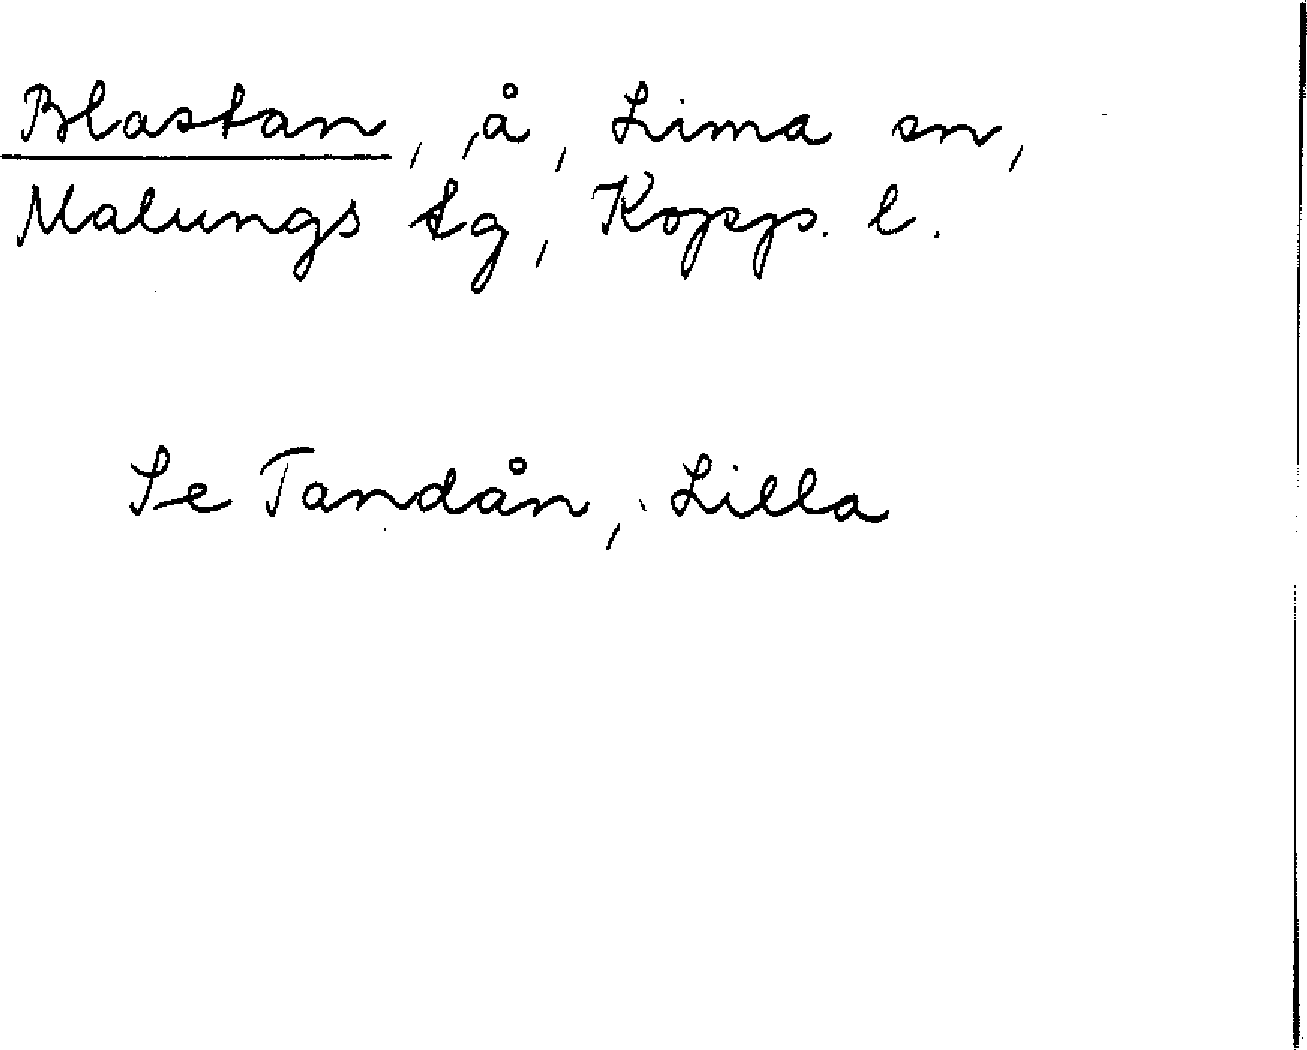 Blastan, å, Lima sn,
Malungs tg, Kopp. l.
Se Tandån, Lilla